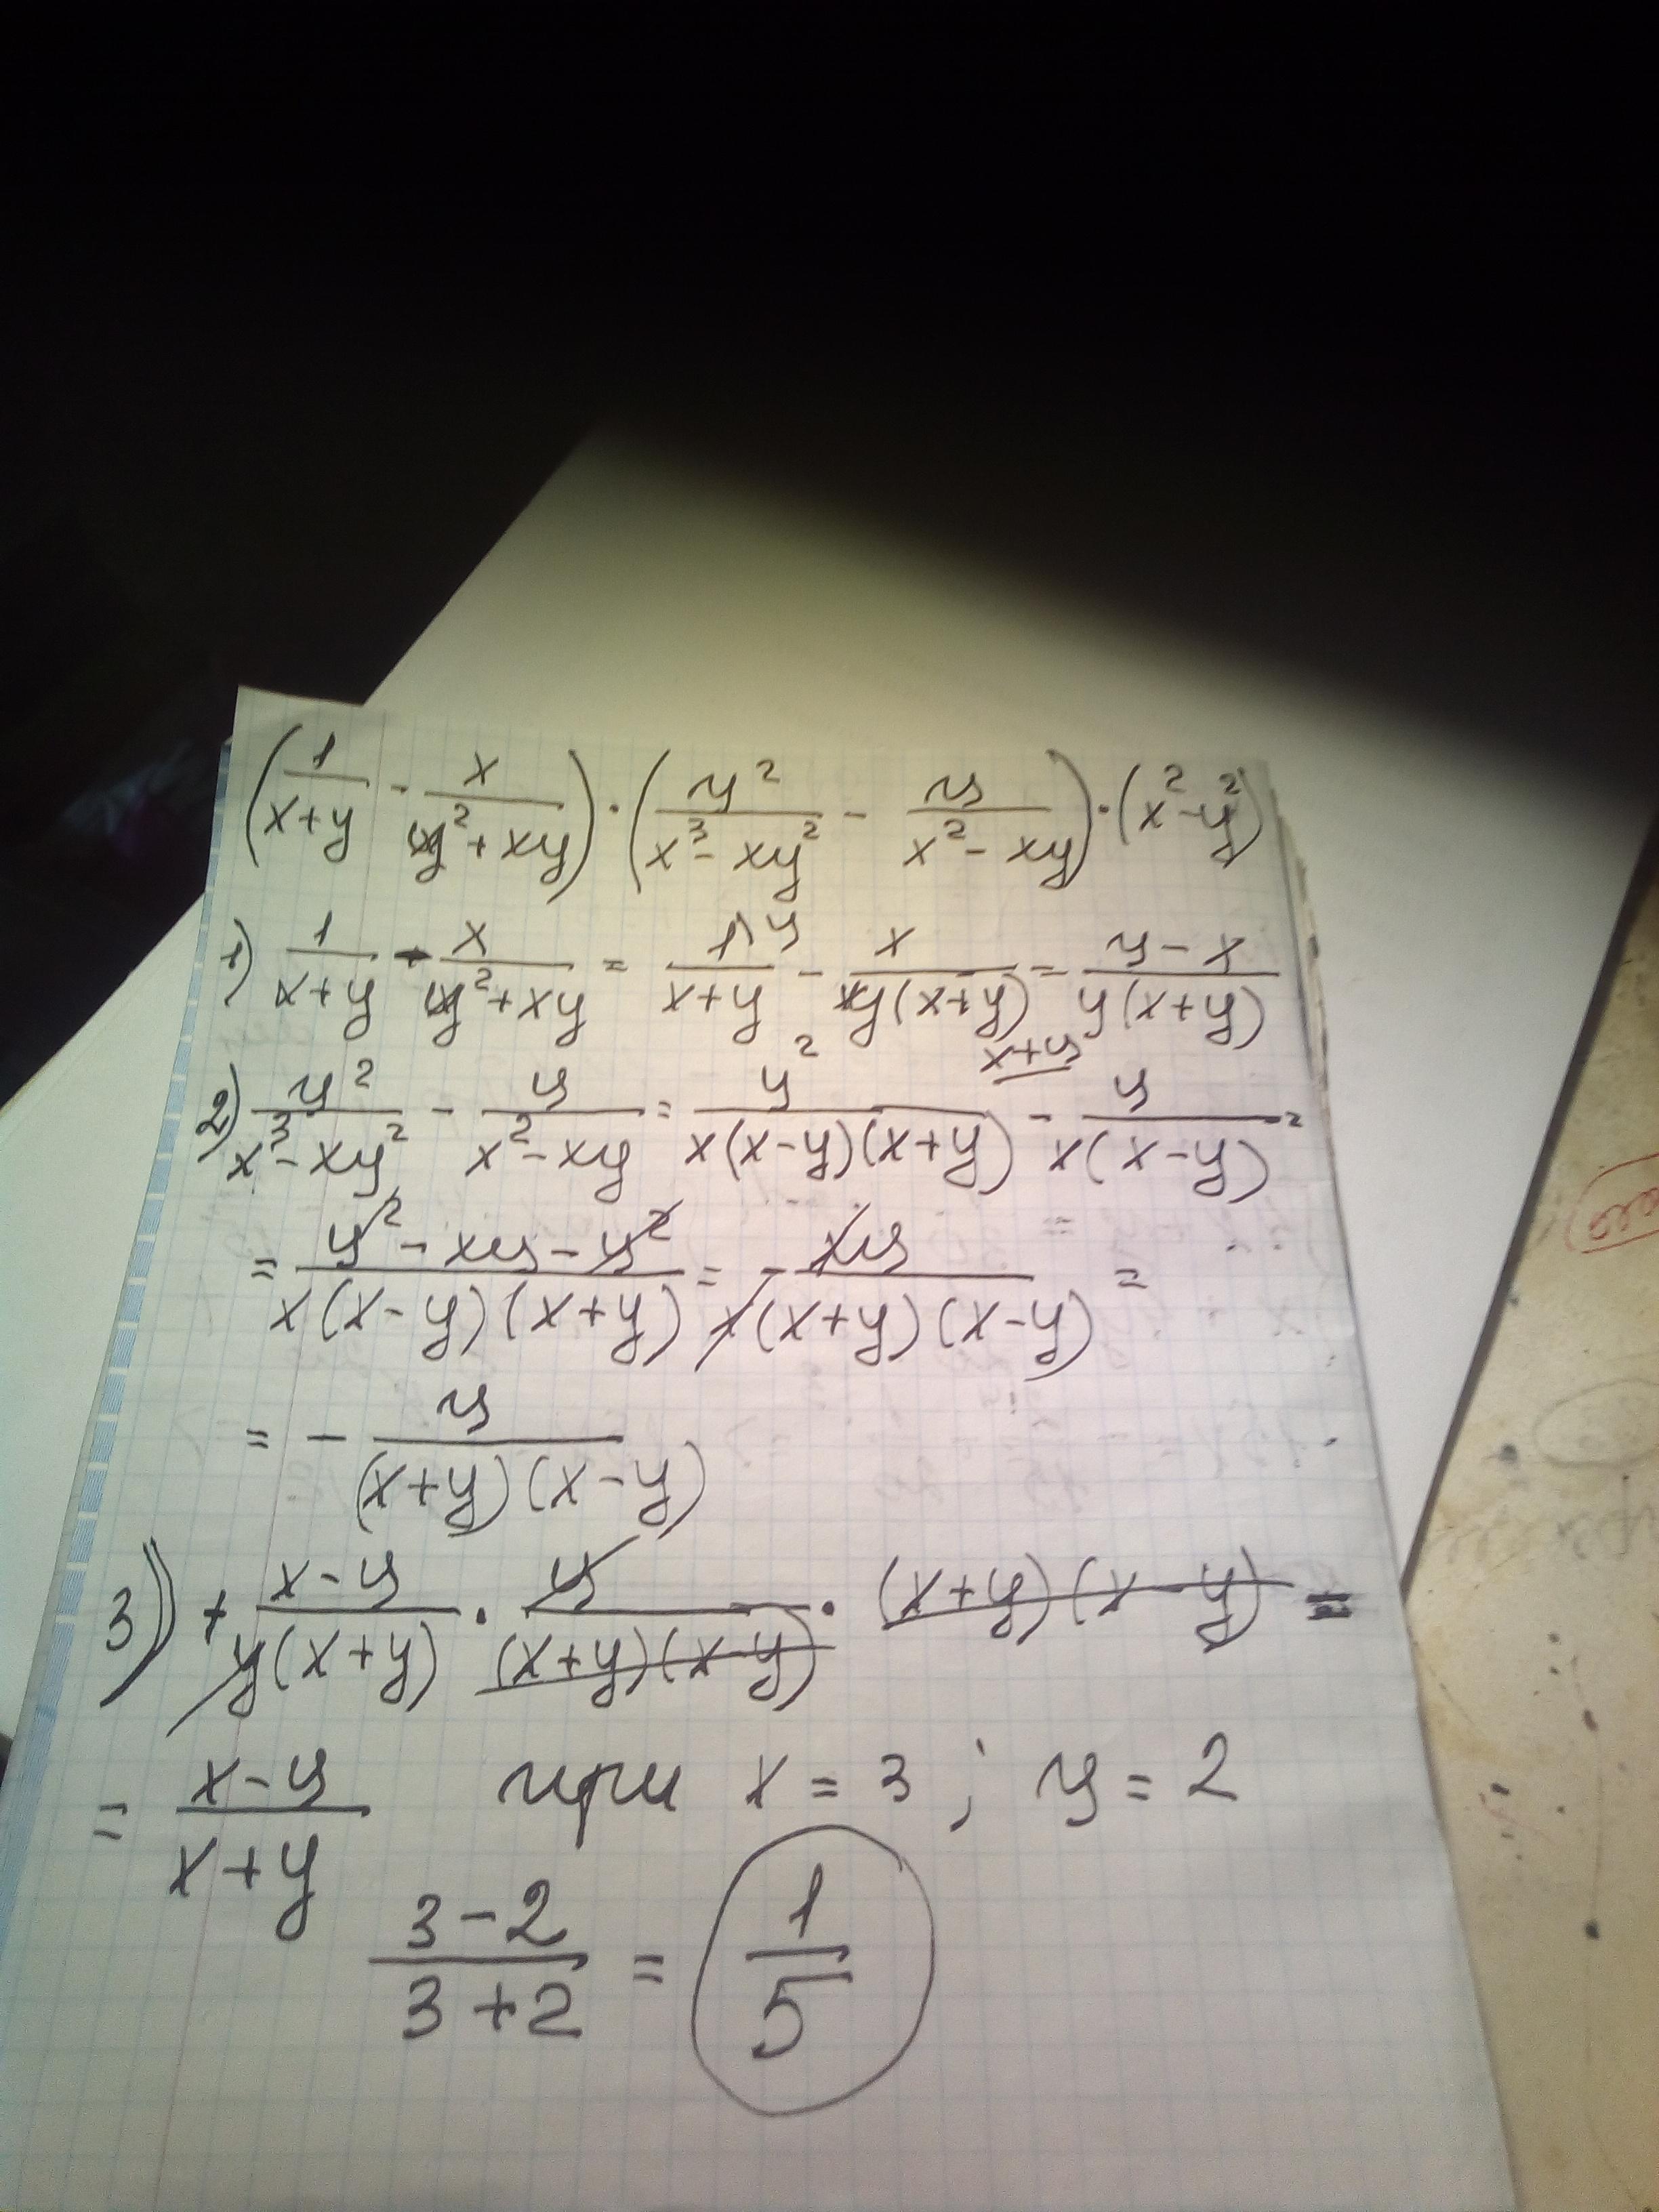 (1/(x+y) - x/(y²+xy)) · (y²/(x³-xy²) - y/(x²-xy)) · (x²-y²)
1) 1/(x+y) - x/(y²+xy) = 1\y/(x+y) - x/(y(x+y)) = (y-x)/(y(x+y))
2) y²/(x³-xy²) - y/(x²-xy) = y²/(x(x-y)(x+y)) - x+y y/(x(x-y)) =
= (y²-xy-y²)/(x(x-y)(x+y)) = - xy/(x(x+y)(x-y)) =
= - y/((x+y)(x-y))
3) + (x-y)/(y(x+y)) · y/((x+y)(x-y)) · (x+y)(x-y) =
= (x-y)/(x+y) при x = 3 ; y = 2
(3-2)/(3+2) = 1/5